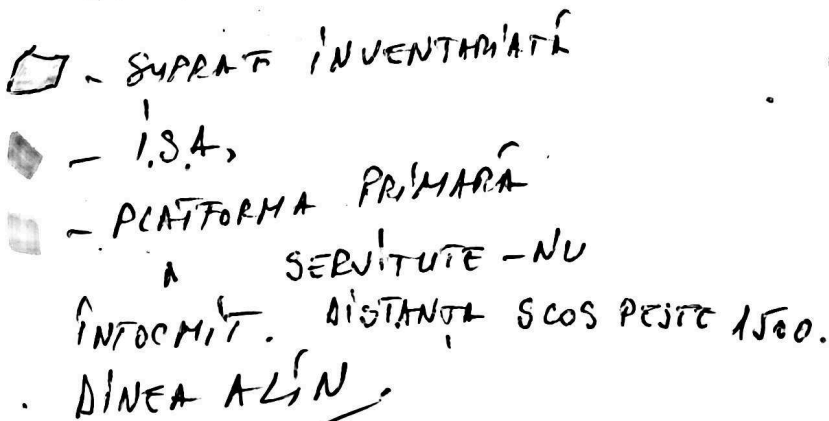 - SUPRAF INVENTARIATĂ
- I.S.A,
- PLATFORMA PRIMARĂ
SERVITUTE - NU
ÎNTOCMIT. DISTANȚA SCOS PESTE 1500.
DINEA ALIN.